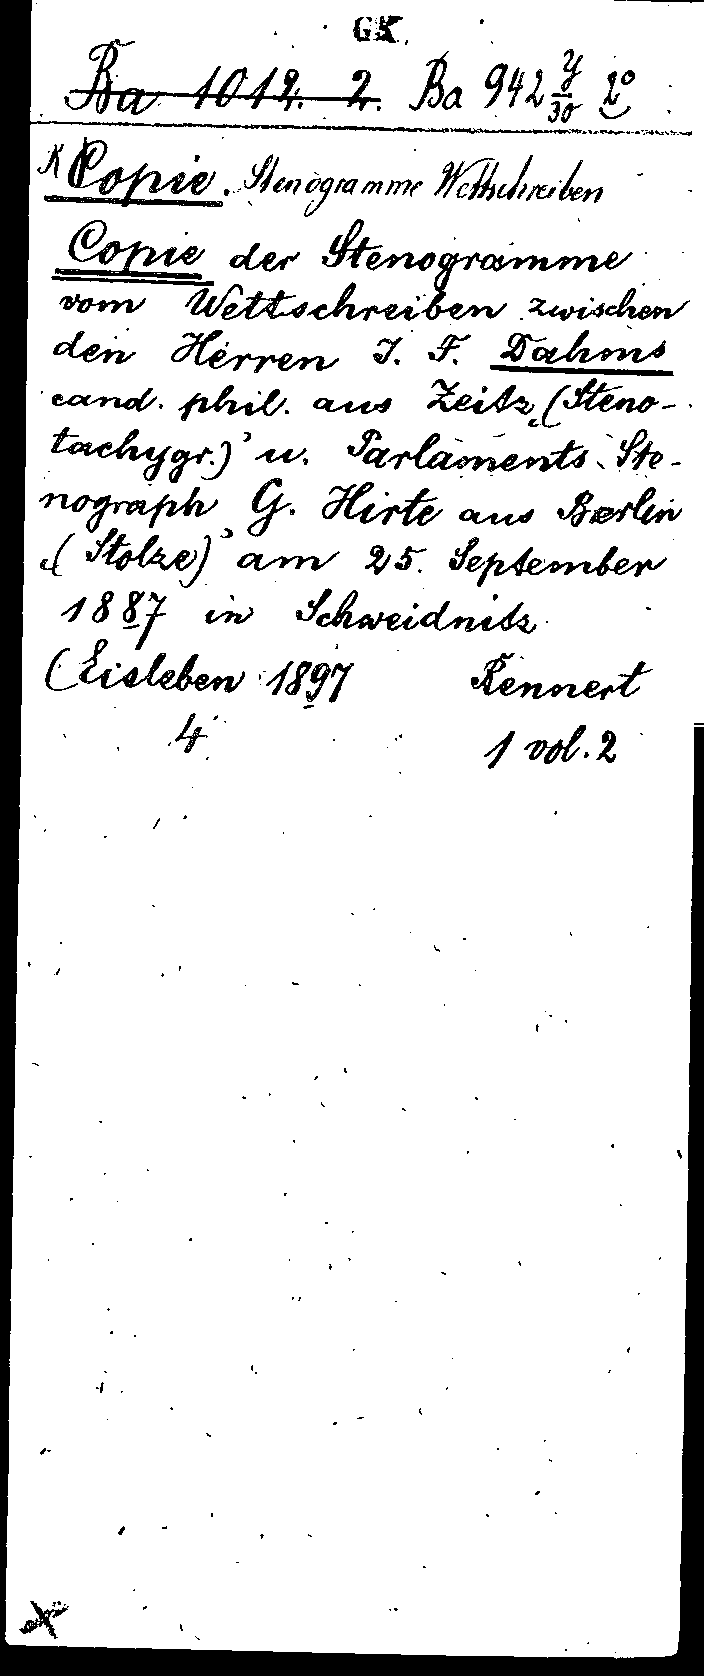 GK
Ba 1012. 2. Ba 942 y/30 2°
K Copie. Stenogramme Wettschreiben
Copie der Stenogramme
vom Wettschreiben zwischen
den Herren J. F. Dahms
cand. phil. aus Zeitz „(Steno-
tachygr.)" u. Parlaments-Ste-
nograph G. Hirte aus Berlin
„(Stolze)" am 25. September
1887 in Schweidnitz
(Eisleben 1897 Rennert
4 1 vol. 2